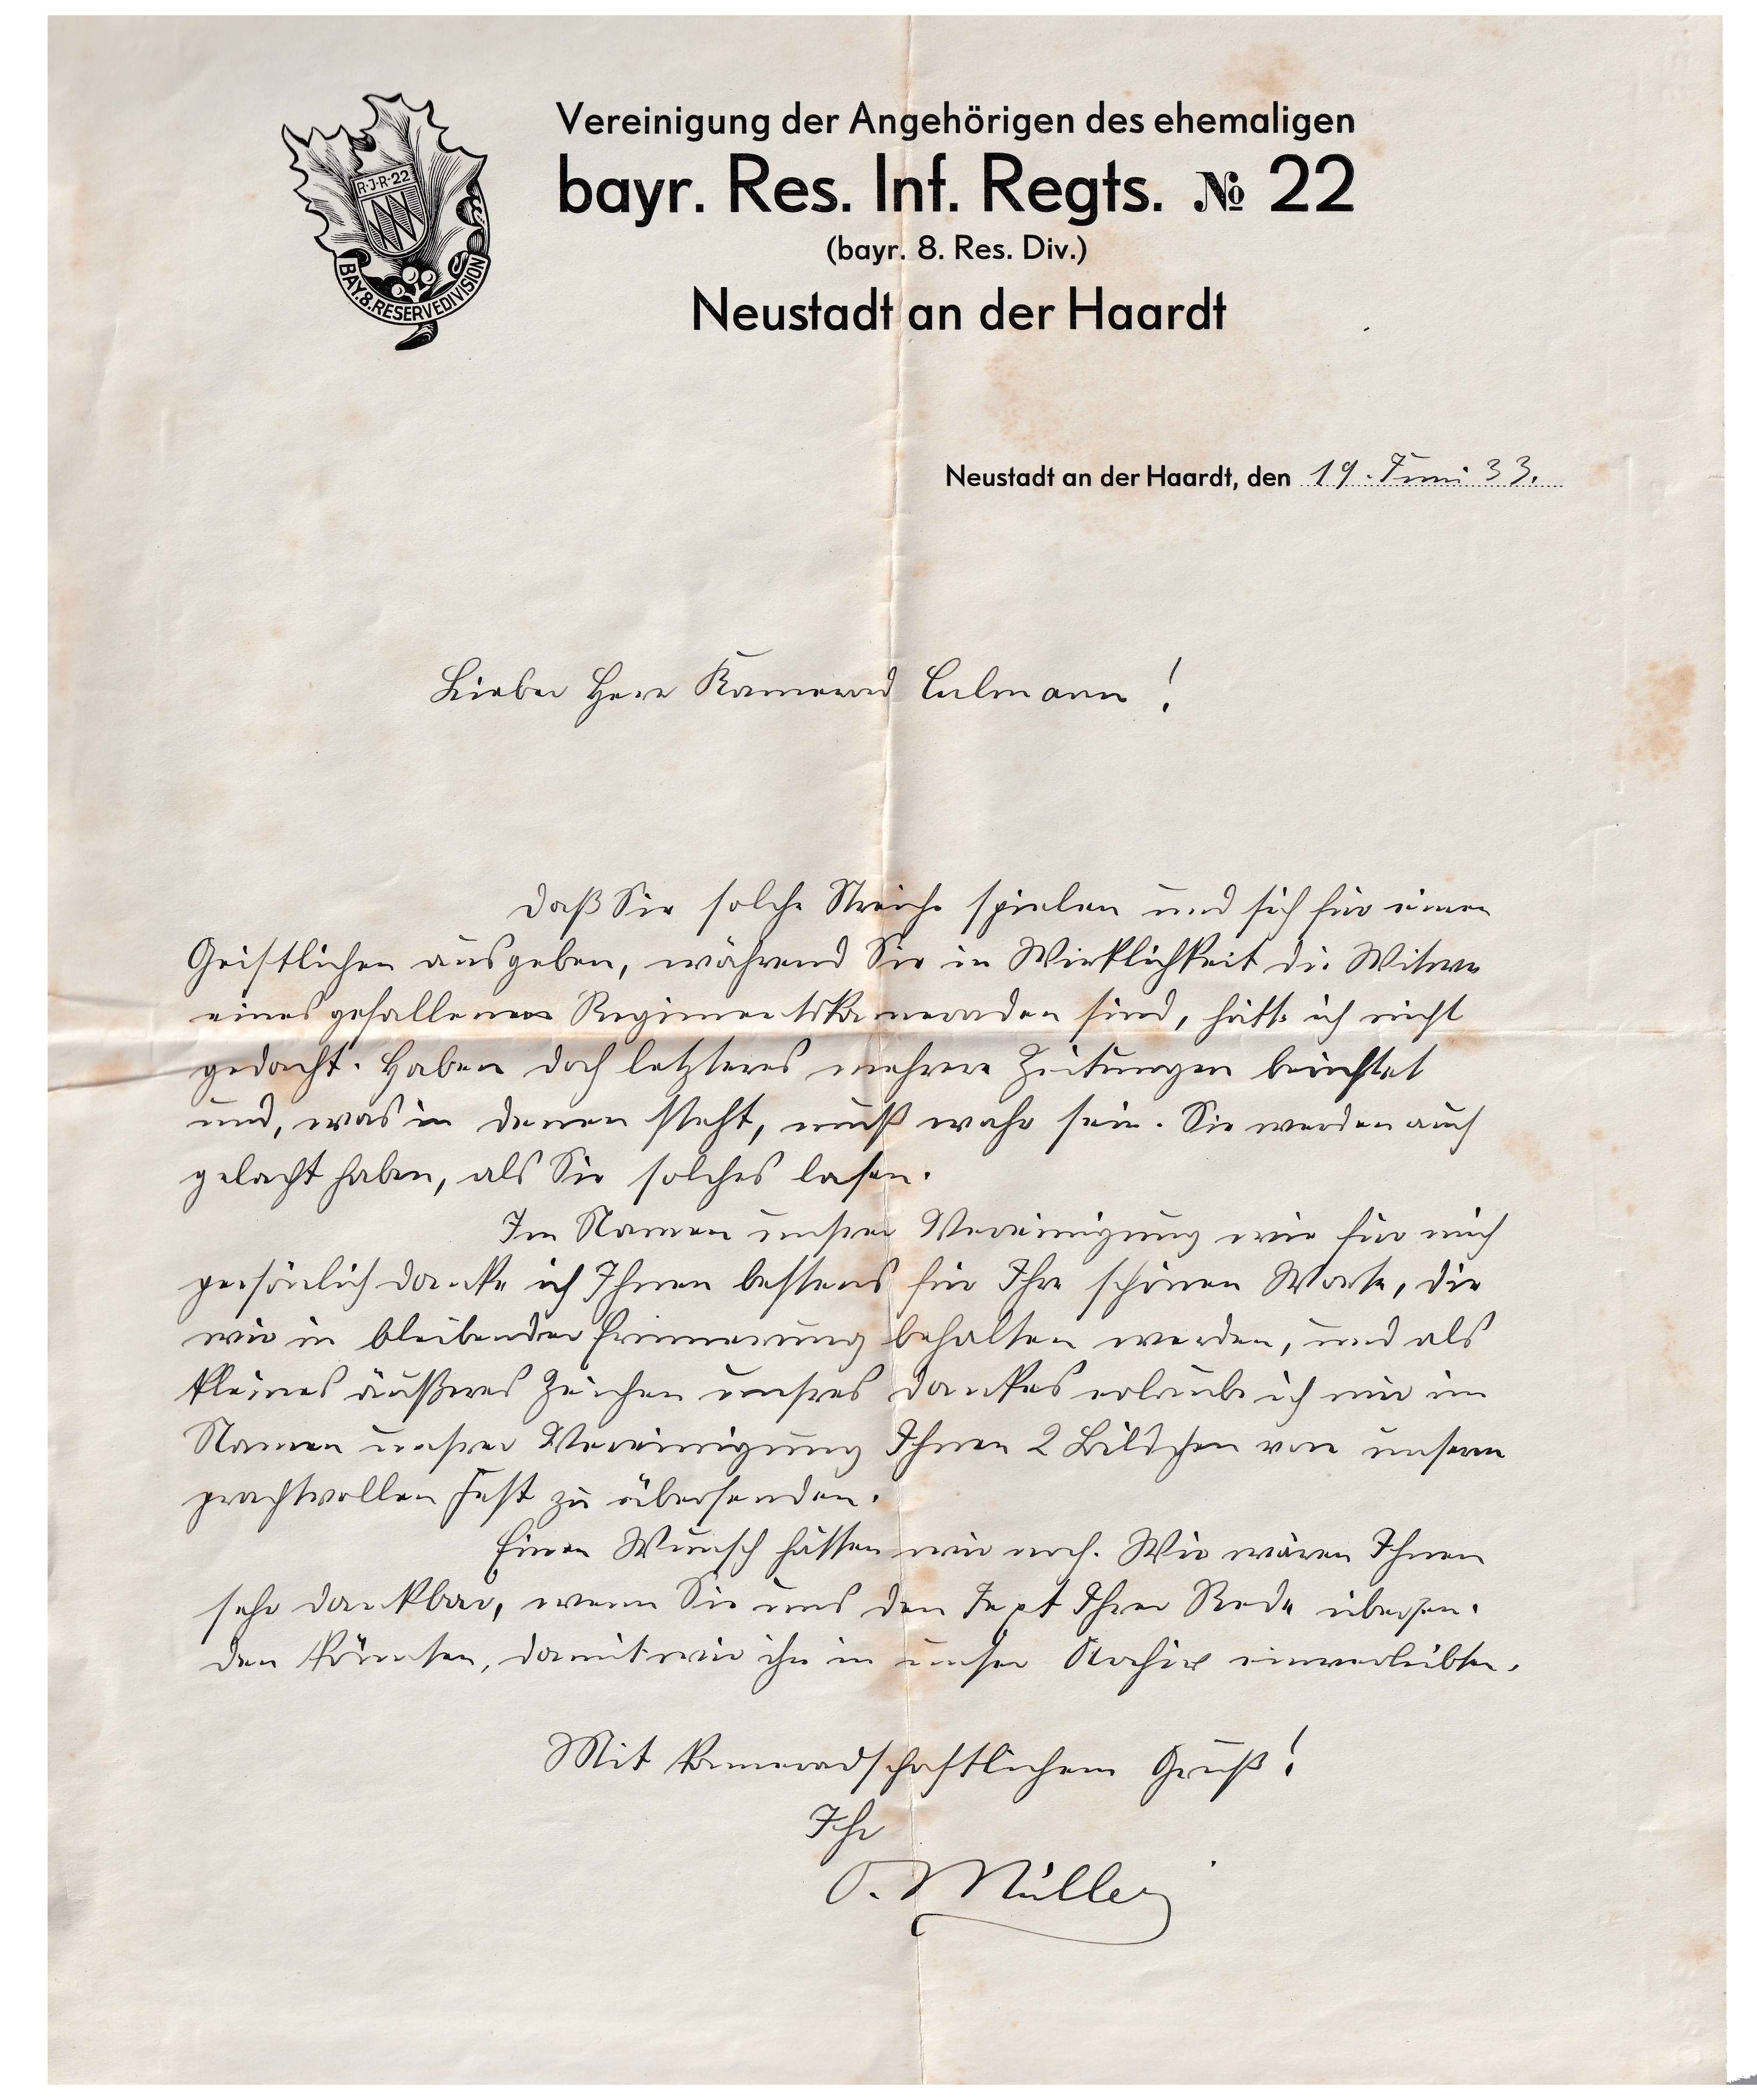 R·J·R·22
BAY.8.RESERVEDIVISION
Vereinigung der Angehörigen des ehemaligen
bayr. Res. Inf. Regts. № 22
(bayr. 8. Res. Div.)
Neustadt an der Haardt
Neustadt an der Haardt, den 19. Juni 33.
Lieber Herr Kamerad Culmann!
Daß Sie solche Streiche spielen und sich für einen
Geistlichen ausgeben, während Sie in Wirklichkeit die Witwe
eines gefallenen Regimentskameraden sind, hätte ich nicht
gedacht. Haben doch letzteres mehrere Zeitungen berichtet
und, was in denen steht, muß wahr sein. Sie werden auch
gelacht haben, als Sie solches lasen.
Im Namen unsrer Vereinigung wie für mich
persönlich danke ich Ihnen bestens für Ihre schönen Worte, die
wir in bleibender Erinnerung behalten werden, und als
kleines äußeres Zeichen unsres Dankes erlaube ich mir im
Namen unsrer Vereinigung Ihnen 2 Bildchen von unserm
prachtvollen Fest zu übersenden.
Einen Wunsch hätten wir noch. Wir wären Ihnen
sehr dankbar, wenn Sie uns den Text Ihrer Rede übersen-
den könnten, damit wir ihn in unser Archiv einverleibten.
Mit kameradschaftlichem Gruß!
Ihr
O. Müller